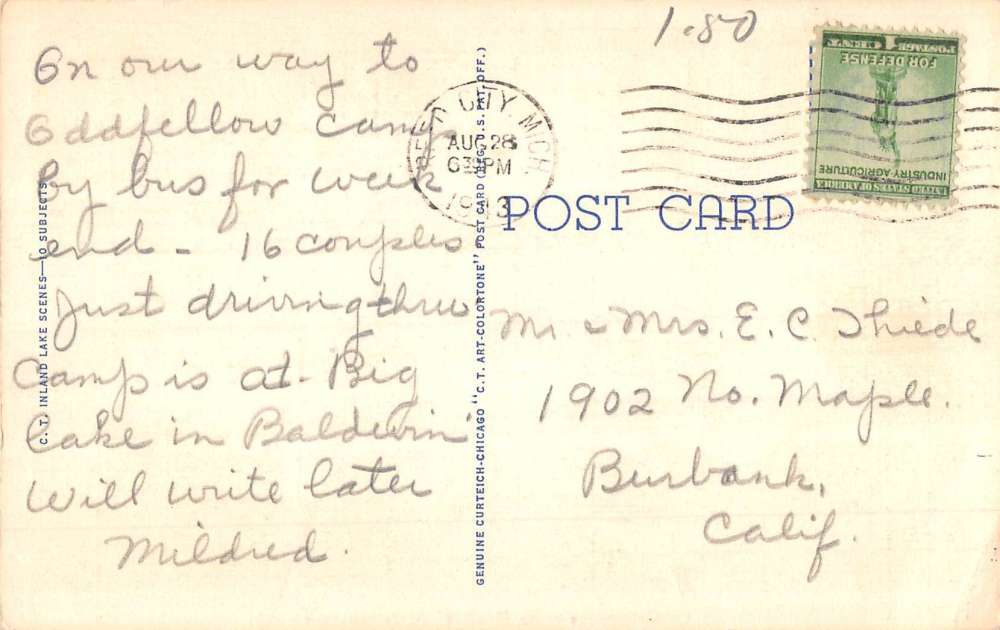 On our way to
Oddfellow camp
by bus for week
end - 16 couples
Just driving thru
Camp is at Big
Lake in Baldwin
Will write later
Mildred.
C. T. INLAND LAKE SCENES—10 SUBJECTS
GENUINE CURTEICH-CHICAGO "C. T. ART-COLORTONE" POST CARD (REG. U. S. PAT. OFF.)
REED CITY, MICH.
AUG 28
6 30 PM
1943
1.80
1 POSTAGE 1
CENT
FOR DEFENSE
INDUSTRY AGRICULTURE
UNITED STATES OF AMERICA
POST CARD
Mr. & Mrs. E. C. Thiede
1902 No. Maple.
Burbank,
Calif.